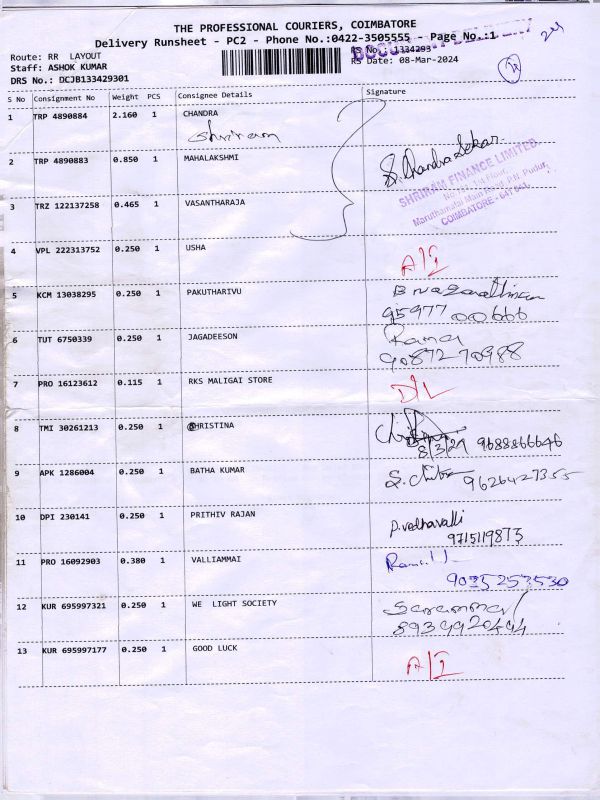 THE PROFESSIONAL COURIERS, COIMBATORE
Delivery Runsheet - PC2 - Phone No.:0422-3505555 - Page No.:1
Route: RR LAYOUT
RS No. 1334293
Staff: ASHOK KUMAR
RS Date: 08-Mar-2024
DRS No.: DCJB133429301
S No Consignment No Weight PCS Consignee Details Signature
1 TRP 4890884 2.160 1 CHANDRA
Shriram
2 TRP 4890883 0.850 1 MAHALAKSHMI
S. Chandra Sekar
SHRIRAM FINANCE LIMITED
Maruthamalai Main P.N. Pudur,
COIMBATORE - 641 041
3 TRZ 122137258 0.465 1 VASANTHARAJA
4 VPL 222313752 0.250 1 USHA
A/I
5 KCM 13038295 0.250 1 PAKUTHARIVU
95977 00666
6 TUT 6750339 0.250 1 JAGADEESON
Rama
90872 70988
7 PRO 16123612 0.115 1 RKS MALIGAI STORE
D/L
8 TMI 30261213 0.250 1 CHRISTINA
8/3/24 9688866646
9 APK 1286004 0.250 1 BATHA KUMAR
S. Chitra 9626427355
10 DPI 230141 0.250 1 PRITHIV RAJAN
P.vedhavalli
9715119873
11 PRO 16092903 0.380 1 VALLIAMMAI
9035253530
12 KUR 695997321 0.250 1 WE LIGHT SOCIETY
8939920494
13 KUR 695997177 0.250 1 GOOD LUCK
A/I